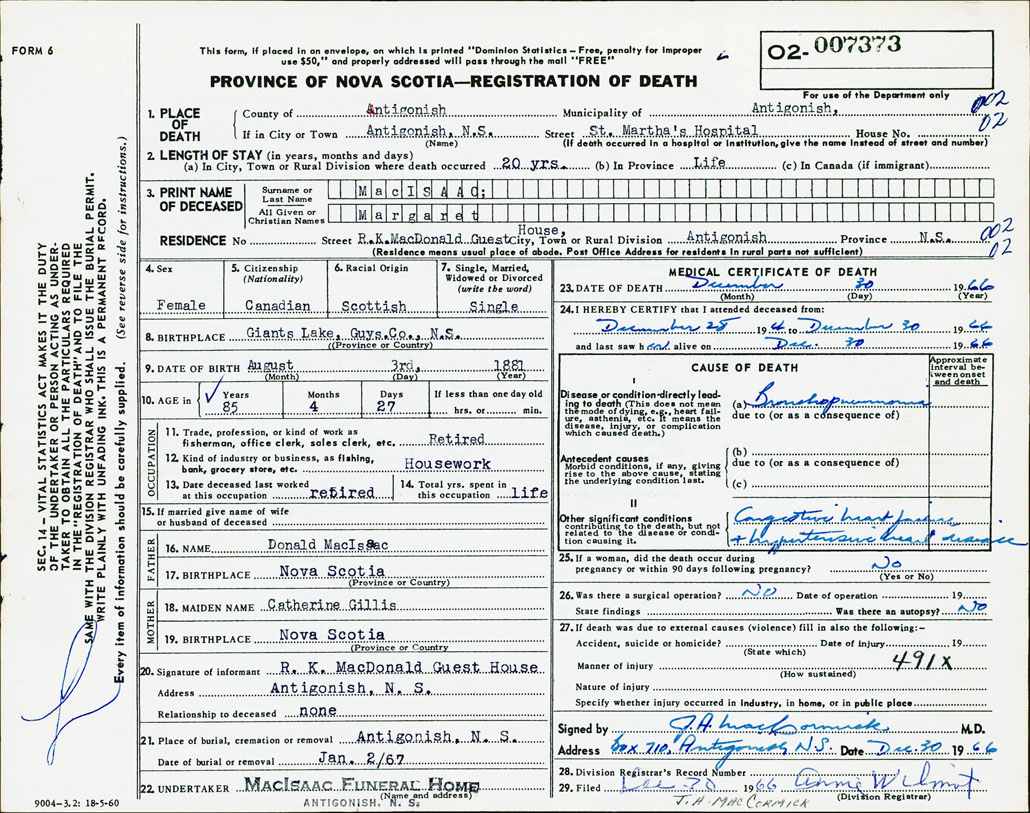 FORM 6
This form, if placed in an envelope, on which is printed "Dominion Statistics – Free, penalty for improper
use $50," and properly addressed will pass through the mail "FREE"
02-007373
For use of the Department only
PROVINCE OF NOVA SCOTIA—REGISTRATION OF DEATH
1. PLACE OF DEATH
County of Antigonish Municipality of Antigonish, 002
If in City or Town Antigonish, N.S. Street St. Martha's Hospital House No. 02
(Name) (If death occurred in a hospital or institution, give the name instead of street and number)
2. LENGTH OF STAY (in years, months and days)
(a) In City, Town or Rural Division where death occurred 20 yrs. (b) In Province Life (c) In Canada (if immigrant)
3. PRINT NAME OF DECEASED
Surname or Last Name MacISAAC;
All Given or Christian Names Margaret
RESIDENCE No Street R.K.MacDonald Guest House, City, Town or Rural Division Antigonish Province N.S. 002
(Residence means usual place of abode. Post Office Address for residents in rural parts not sufficient) 02
4. Sex Female
5. Citizenship (Nationality) Canadian
6. Racial Origin Scottish
7. Single, Married, Widowed or Divorced (write the word) Single
8. BIRTHPLACE Giants Lake, Guys.Co., N.S.
(Province or Country)
9. DATE OF BIRTH August 3rd, 1881
(Month) (Day) (Year)
10. AGE in Years 85 Months 4 Days 27 If less than one day old hrs. or min.
OCCUPATION
11. Trade, profession, or kind of work as
fisherman, office clerk, sales clerk, etc. Retired
12. Kind of industry or business, as fishing,
bank, grocery store, etc. Housework
13. Date deceased last worked at this occupation retired
14. Total yrs. spent in this occupation life
15. If married give name of wife
or husband of deceased
FATHER
16. NAME Donald MacIsaac
17. BIRTHPLACE Nova Scotia
(Province or Country)
MOTHER
18. MAIDEN NAME Catherine Gillis
19. BIRTHPLACE Nova Scotia
(Province or Country
20. Signature of informant R. K. MacDonald Guest House
Address Antigonish, N. S.
Relationship to deceased none
21. Place of burial, cremation or removal Antigonish, N. S.
Date of burial or removal Jan. 2/67
22. UNDERTAKER MACISAAC FUNERAL HOME
(Name and address)
ANTIGONISH, N. S.
MEDICAL CERTIFICATE OF DEATH
23. DATE OF DEATH December 30 1966
(Month) (Day) (Year)
24. I HEREBY CERTIFY that I attended deceased from:
December 28 19 to December 30 1966
and last saw her alive on Dec. 30 1966
CAUSE OF DEATH
Approximate interval between onset and death
I
Disease or condition directly leading to death (This does not mean the mode of dying, e.g., heart failure, asthenia, etc. It means the disease, injury, or complication which caused death.)
(a) Bronchopneumonia
due to (or as a consequence of)
Antecedent causes
Morbid conditions, if any, giving rise to the above cause, stating the underlying condition last.
(b)
due to (or as a consequence of)
(c)
II
Other significant conditions contributing to the death, but not related to the disease or condition causing it.
Congestive heart failure
+ hypertensive heart disease
25. If a woman, did the death occur during
pregnancy or within 90 days following pregnancy? No
(Yes or No)
26. Was there a surgical operation? NO Date of operation 19
State findings Was there an autopsy? No
27. If death was due to external causes (violence) fill in also the following:–
Accident, suicide or homicide? Date of injury 19
(State which)
Manner of injury 491X
(How sustained)
Nature of injury
Specify whether injury occurred in industry, in home, or in public place
Signed by J.A. MacCormick M.D.
Address Box 710, Antigonish, N.S. Date Dec. 30 1966
28. Division Registrar's Record Number
29. Filed Dec 30 1966
(Division Registrar)
J. A. MACCORMICK
SEC. 14 – VITAL STATISTICS ACT MAKES IT THE DUTY
OF THE UNDERTAKER OR PERSON ACTING AS UNDER-
TAKER TO OBTAIN ALL THE PARTICULARS REQUIRED
IN THE "REGISTRATION OF DEATH" AND TO FILE THE
SAME WITH THE DIVISION REGISTRAR WHO SHALL ISSUE THE BURIAL PERMIT.
WRITE PLAINLY WITH UNFADING INK. THIS IS A PERMANENT RECORD.
Every item of information should be carefully supplied. (See reverse side for instructions.)
9004-3.2: 18-5-60